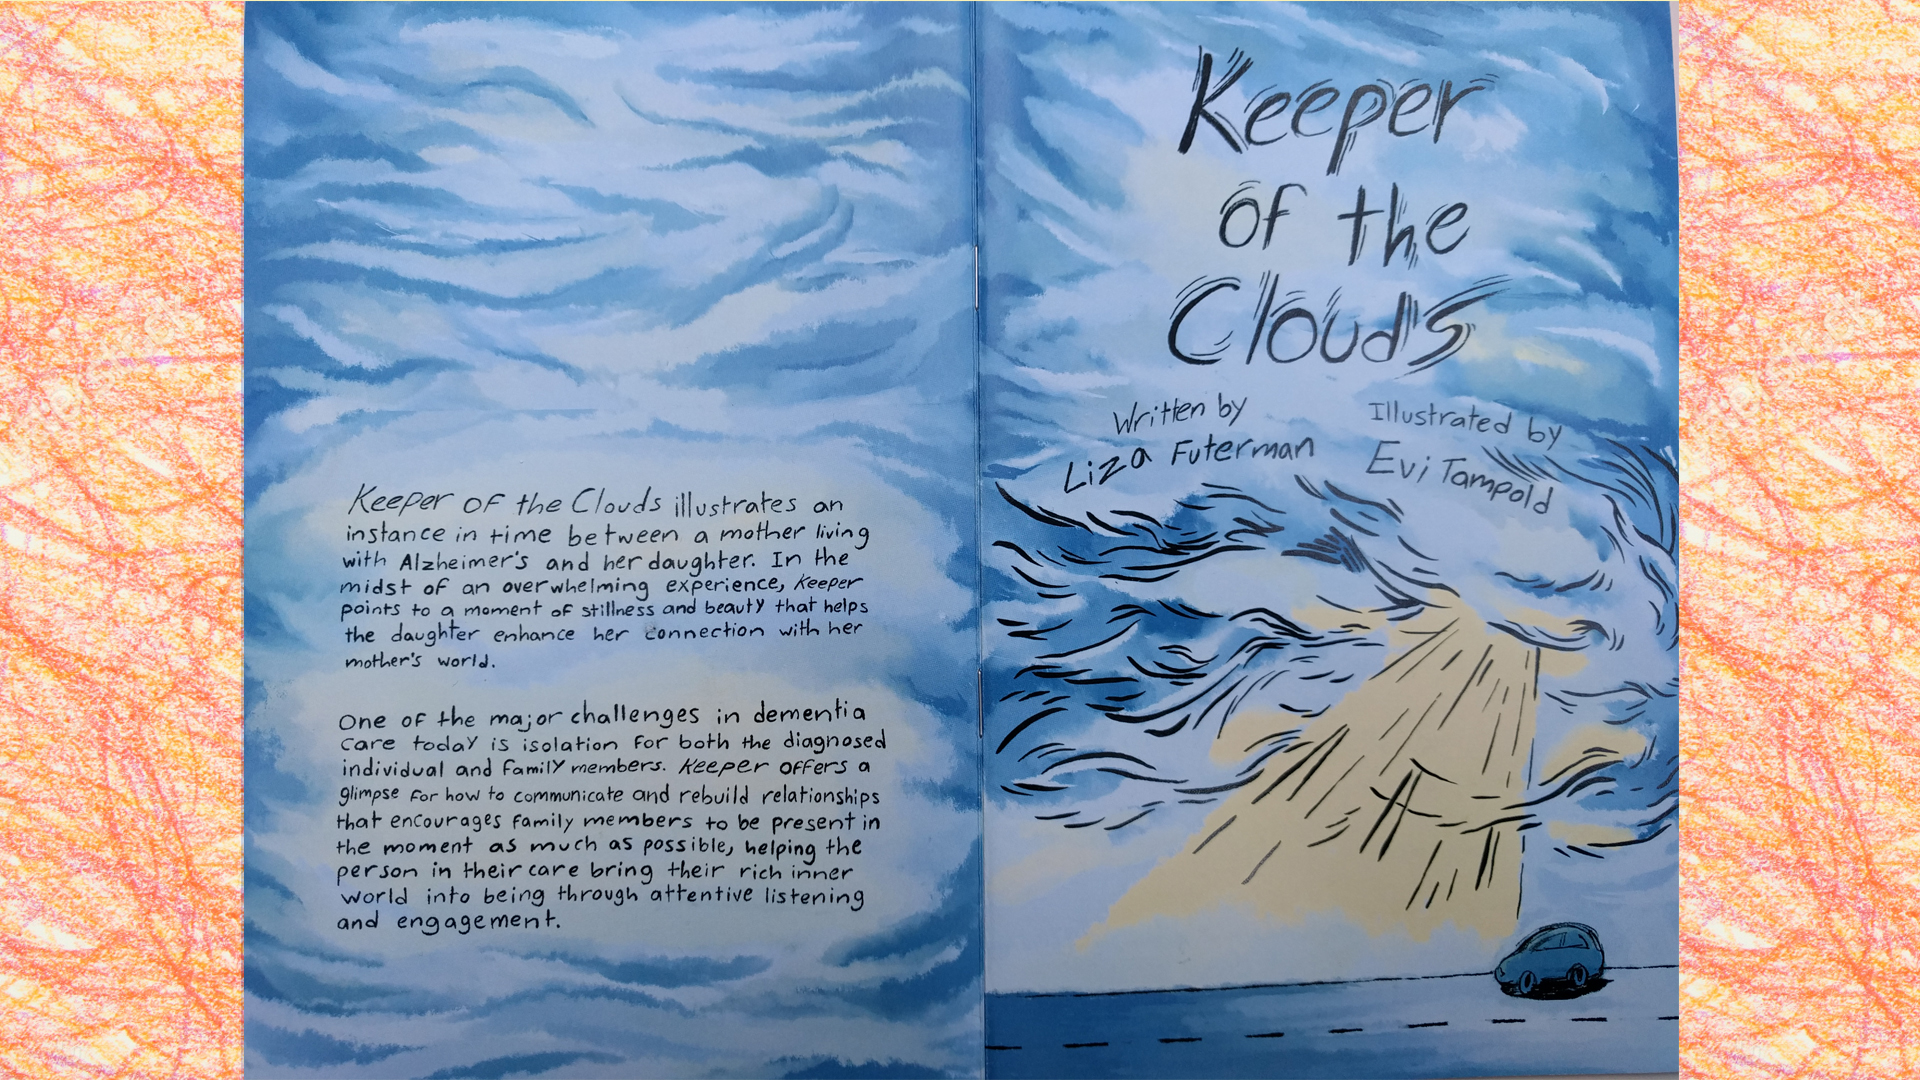 Keeper of the Clouds illustrates an
instance in time between a mother living
with Alzheimer's and her daughter. In the
midst of an overwhelming experience, Keeper
points to a moment of stillness and beauty that helps
the daughter enhance her connection with her
mother's world.
One of the major challenges in dementia
care today is isolation for both the diagnosed
individual and family members. Keeper offers a
glimpse for how to communicate and rebuild relationships
that encourages family members to be present in
the moment as much as possible, helping the
person in their care bring their rich inner
world into being through attentive listening
and engagement.
Keeper
of the
Clouds
Written by
Liza Futerman
Illustrated by
Evi Tampold